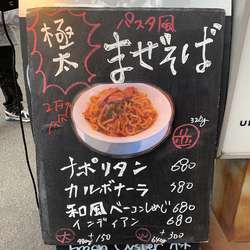 極太
パスタ風
まぜそば
320g
並
ナポリタン 680
カルボナーラ 680
和風ベーコンしめじ 680
インディアン 680
大 +150
+300